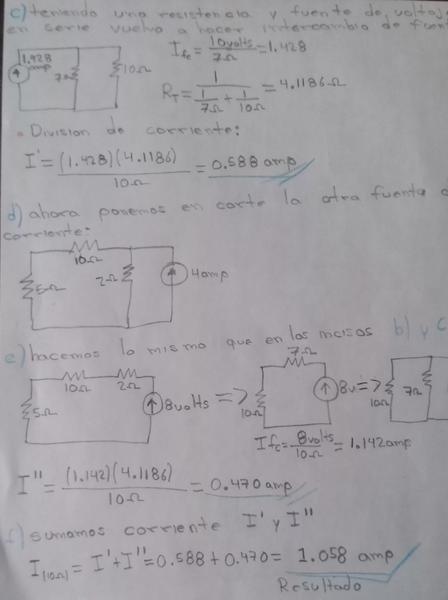 c) teniendo una resistencia y fuente de voltaje
en serie vuelvo a hacer intercambio de fuent
1.428 amp
7Ω
10Ω
I fc = 10volts / 7Ω = 1.428
RT = 1 / (1/7Ω + 1/10Ω) = 4.1186Ω
• Division de corriente:
I' = (1.428)(4.1186) / 10Ω = 0.588 amp
d) ahora ponemos en corte la otra fuente d
corriente:
10Ω
5Ω
2Ω
4amp
e) hacemos lo mismo que en los incisos b) y c
10Ω
2Ω
5Ω
8volts
=>
7Ω
10Ω
8v
=>
10Ω
7Ω
I fc = 8volts / 10Ω = 1.142amp
I'' = (1.142)(4.1186) / 10Ω = 0.470 amp
f) sumamos corriente I' y I''
I(10Ω) = I' + I'' = 0.588 + 0.470 = 1.058 amp
Resultado